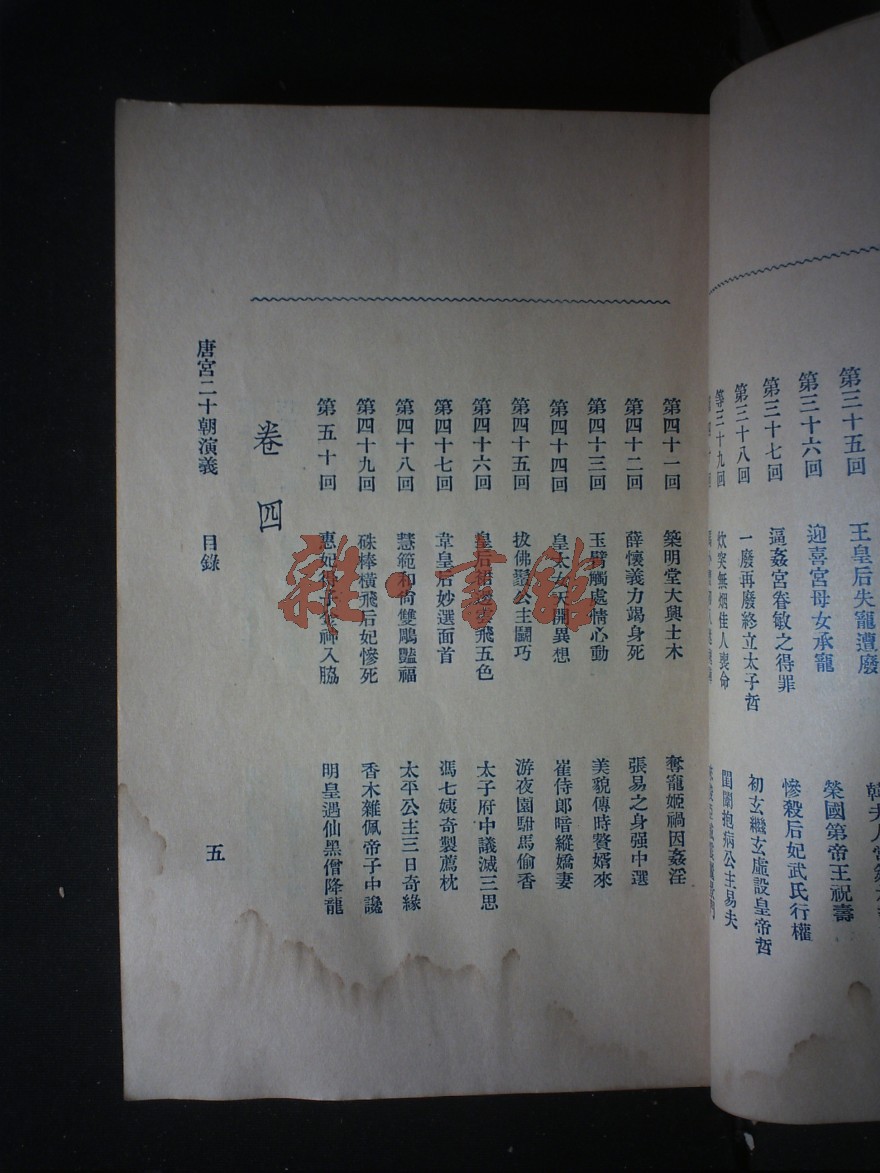 第三十五回 王皇后失寵遭廢
第三十六回 迎喜宮母女承寵 榮國第帝王祝壽
第三十七回 逼姦宮眷敏之得罪 慘殺后妃武氏行權
第三十八回 一廢再廢終立太子哲 初玄繼玄虛設皇帝哲
等三十九回 炊突無烟佳人喪命 閨闥抱病公主易夫
第四十一回 築明堂大興土木 奪寵姬禍因姦淫
第四十二回 薛懷義力竭身死 張易之身强中選
第四十三回 玉臂觸處情心動 美貌傳時贅婿來
第四十四回 皇太女天開異想 崔侍郎暗縱嬌妻
第四十五回 拔佛鬚公主鬭巧 游夜園駙馬偷香
第四十六回 皇后 飛五色 太子府中議滅三思
第四十七回 韋皇后妙選面首 馮七姨奇製薦枕
第四十八回 慧範和尚雙鵰豔福 太平公主三日奇緣
第四十九回 硃棒橫飛后妃慘死 香木雜佩帝子中讒
第五十回 惠妃 子金神入脇 明皇遇仙黑僧降龍
卷四
唐宮二十朝演義 目錄 五
雜·書館